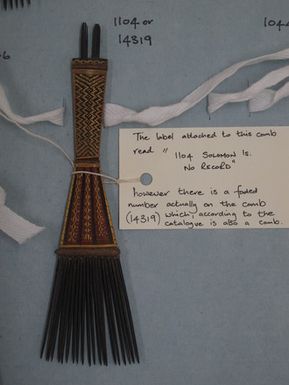 1104 or
14319
1044
6
The label attached to this comb
read "
1104 SOLOMON IS.
NO RECORD"
however there is a faded
number actually on the comb
(14319) which, according to the
catalogue is also a comb.